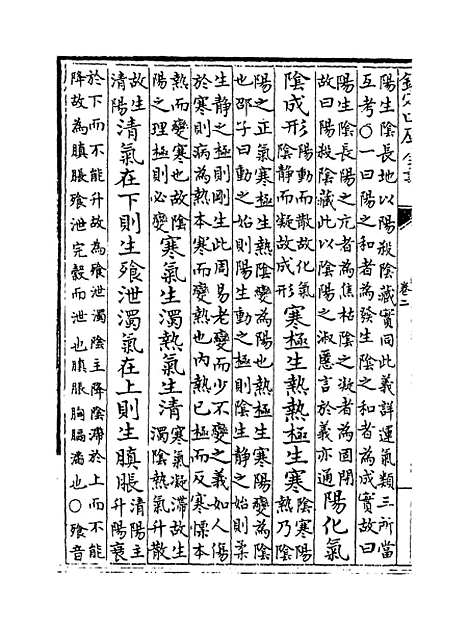 欽定四庫全書
卷二
陽生陰長地以陽殺陰藏實同此義詳運氣類三所當
互考○一曰陽之和者為發生陰之和者為成實故曰
陽生陰長陽之亢者為焦枯陰之凝者為固閉
故曰陽殺陰藏此以陰陽之淑慝言於義亦通
陽化氣
陰成形
陽動而散故化氣
陰靜而凝故成形
寒極生熱熱極生寒
陰寒陽
熱乃陰
陽之正氣寒極生熱陰變為陽也熱極生寒陽變為陰
也邵子曰動之始則陽生動之極則陰生靜之始則柔
生靜之極則剛生此周易老變而少不變之義如人傷
於寒則病為熱本寒而變熱也內熱已極而反寒慄本
熱而變寒也故陰
陽之理極則必變
寒氣生濁熱氣生清
寒氣凝滯故生
濁陰熱氣升散
故生
清陽
清氣在下則生飧泄濁氣在上則生䐜脹
清陽主
升陽衰
於下而不能升故為飧泄濁陰主降陰滯於上而不能
降故為䐜脹飧泄完穀而泄也䐜脹胸膈滿也○飧音